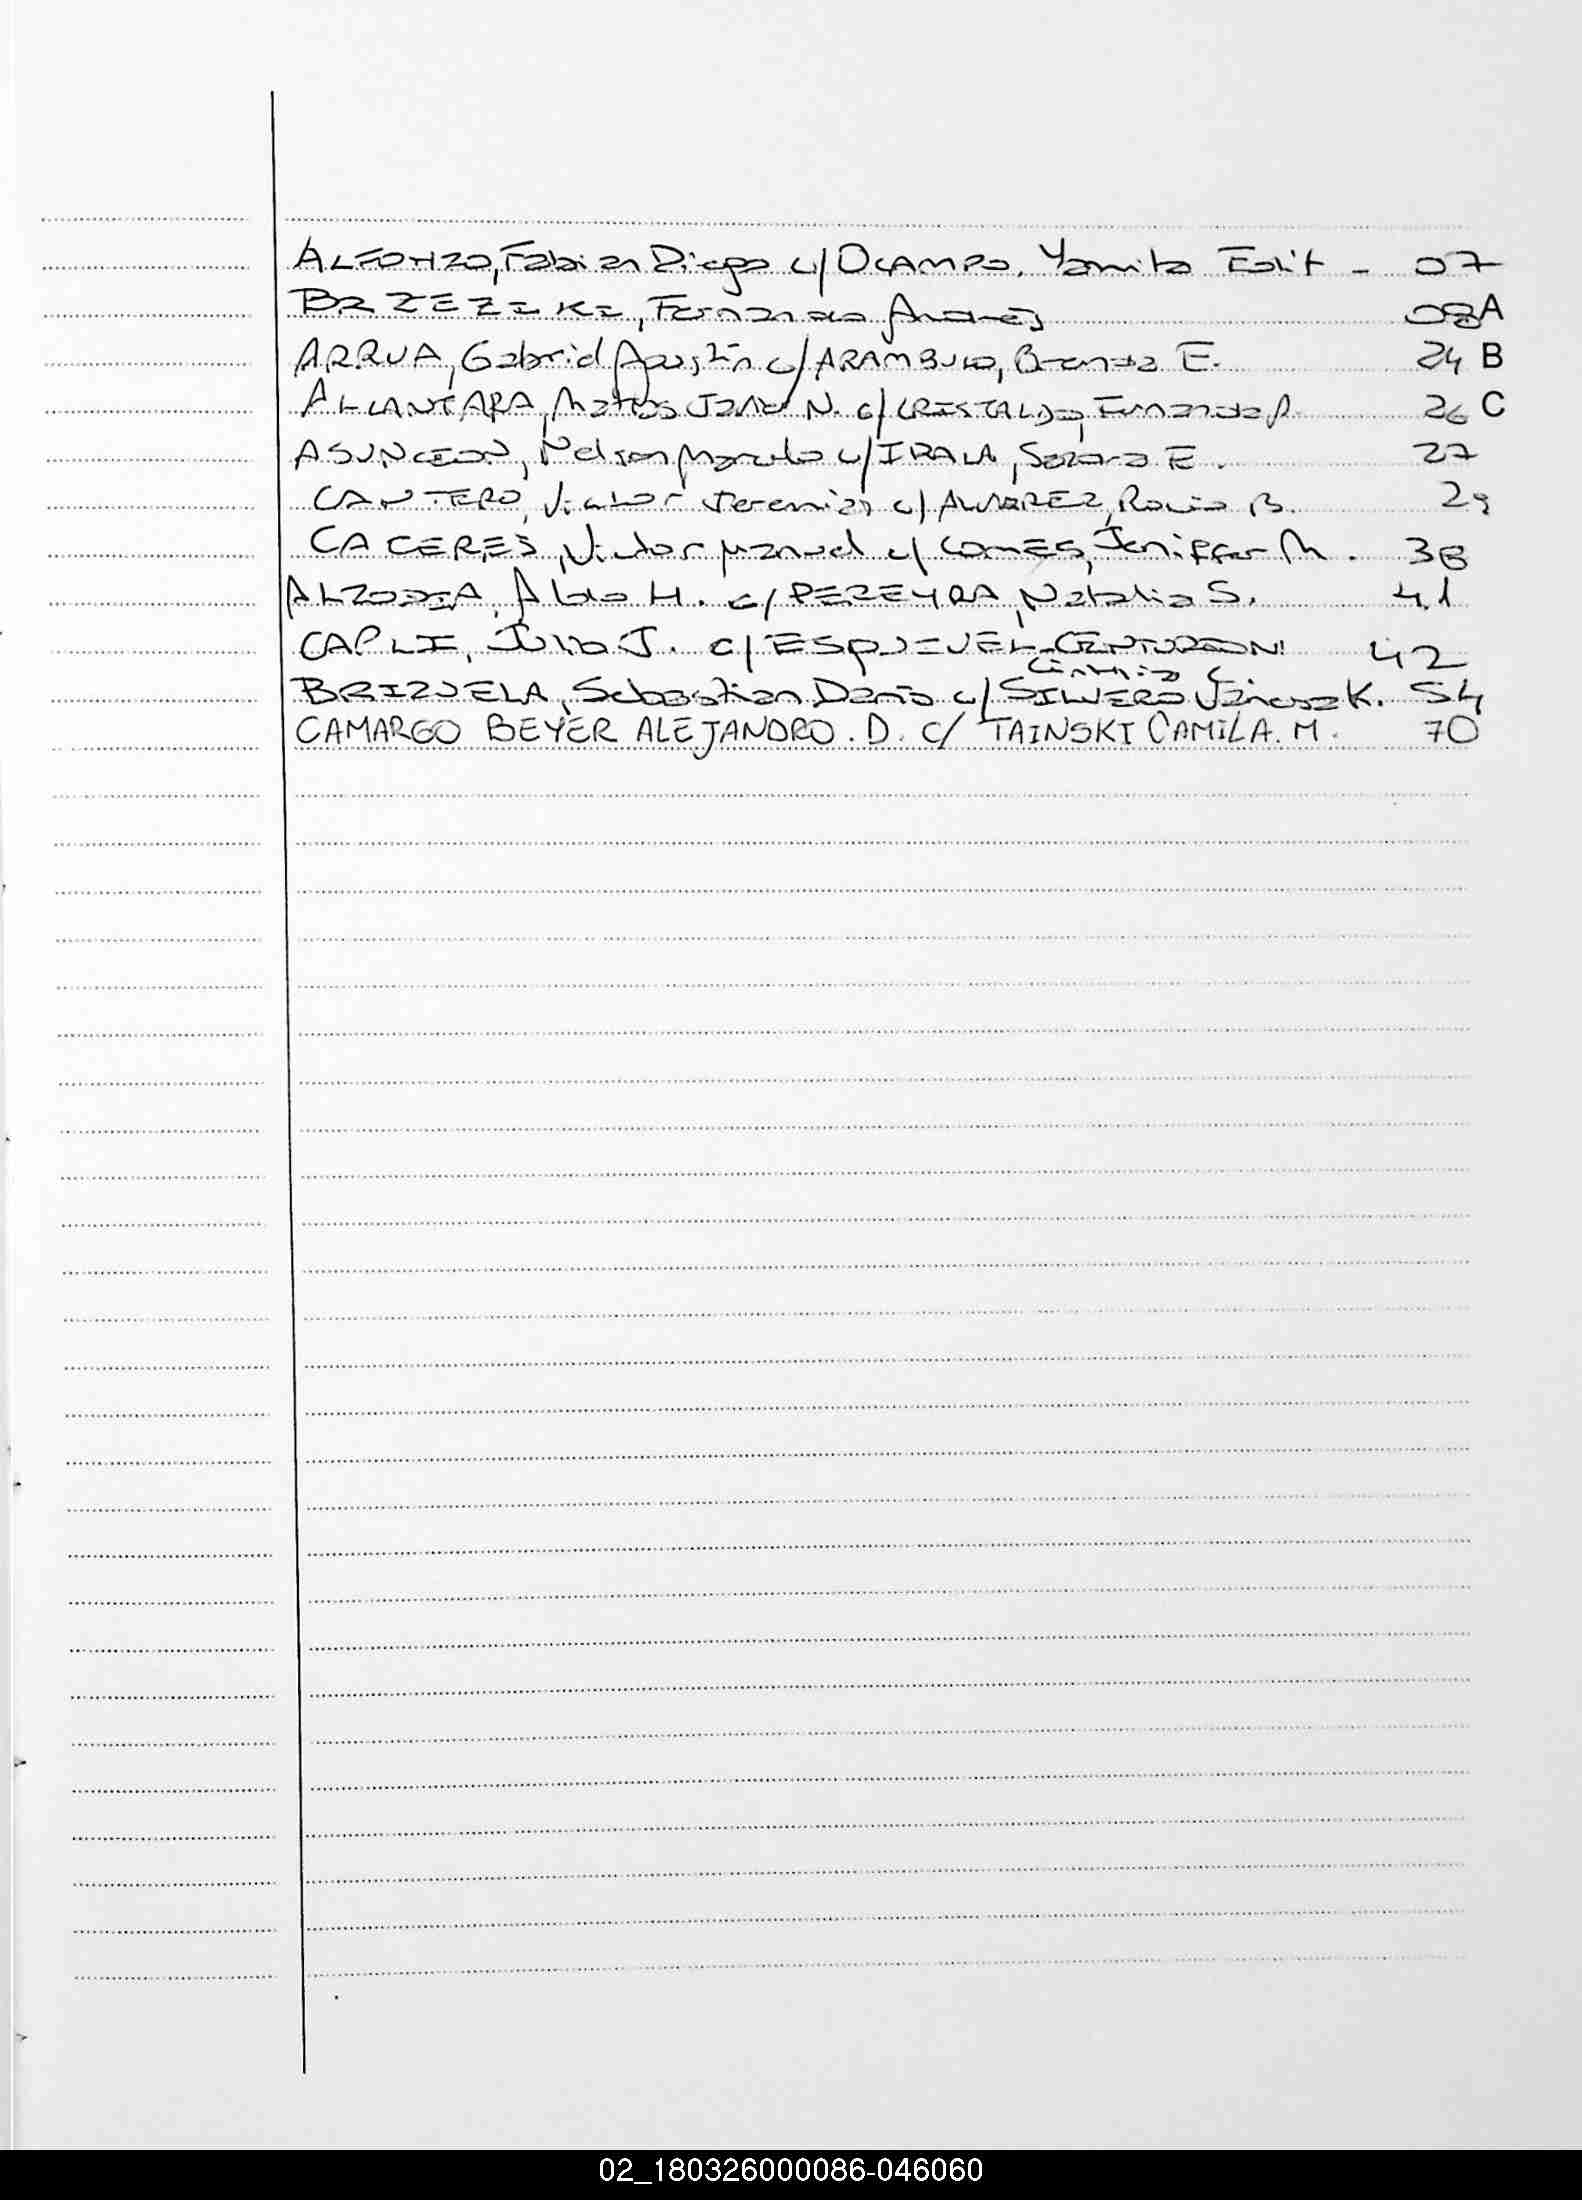 ALFONZO, Fabian Diego c/ OCAMPO, Yamila Edit - 07
BRZEZIKI, Fernando Andrés 08 A
ARRUA, Gabriel Agustín c/ ARAMBULO, Brenda E. 24 B
ALCANTARA, Matías N. c/ CRISTALDO, Fernanda 26 C
ASUNCION, Nelson Marcelo c/ IRALA, E. 27
CANTERO, Victor Jeremias c/ ALVAREZ, Rocio B. 29
CACERES, Victor Manuel c/ GOMES, Jeniffer M. 38
Aldo H. c/ PEREYRA, Natalia S. 41
Julio J. c/ ESQUIVEL CENTURION 42
Cinthia C
BRIZUELA, Sebastian Dario c/ SILVERO K. 54
CAMARGO BEYER ALEJANDRO. D. c/ TAINSKI CAMILA. M. 70
02_180326000086-046060